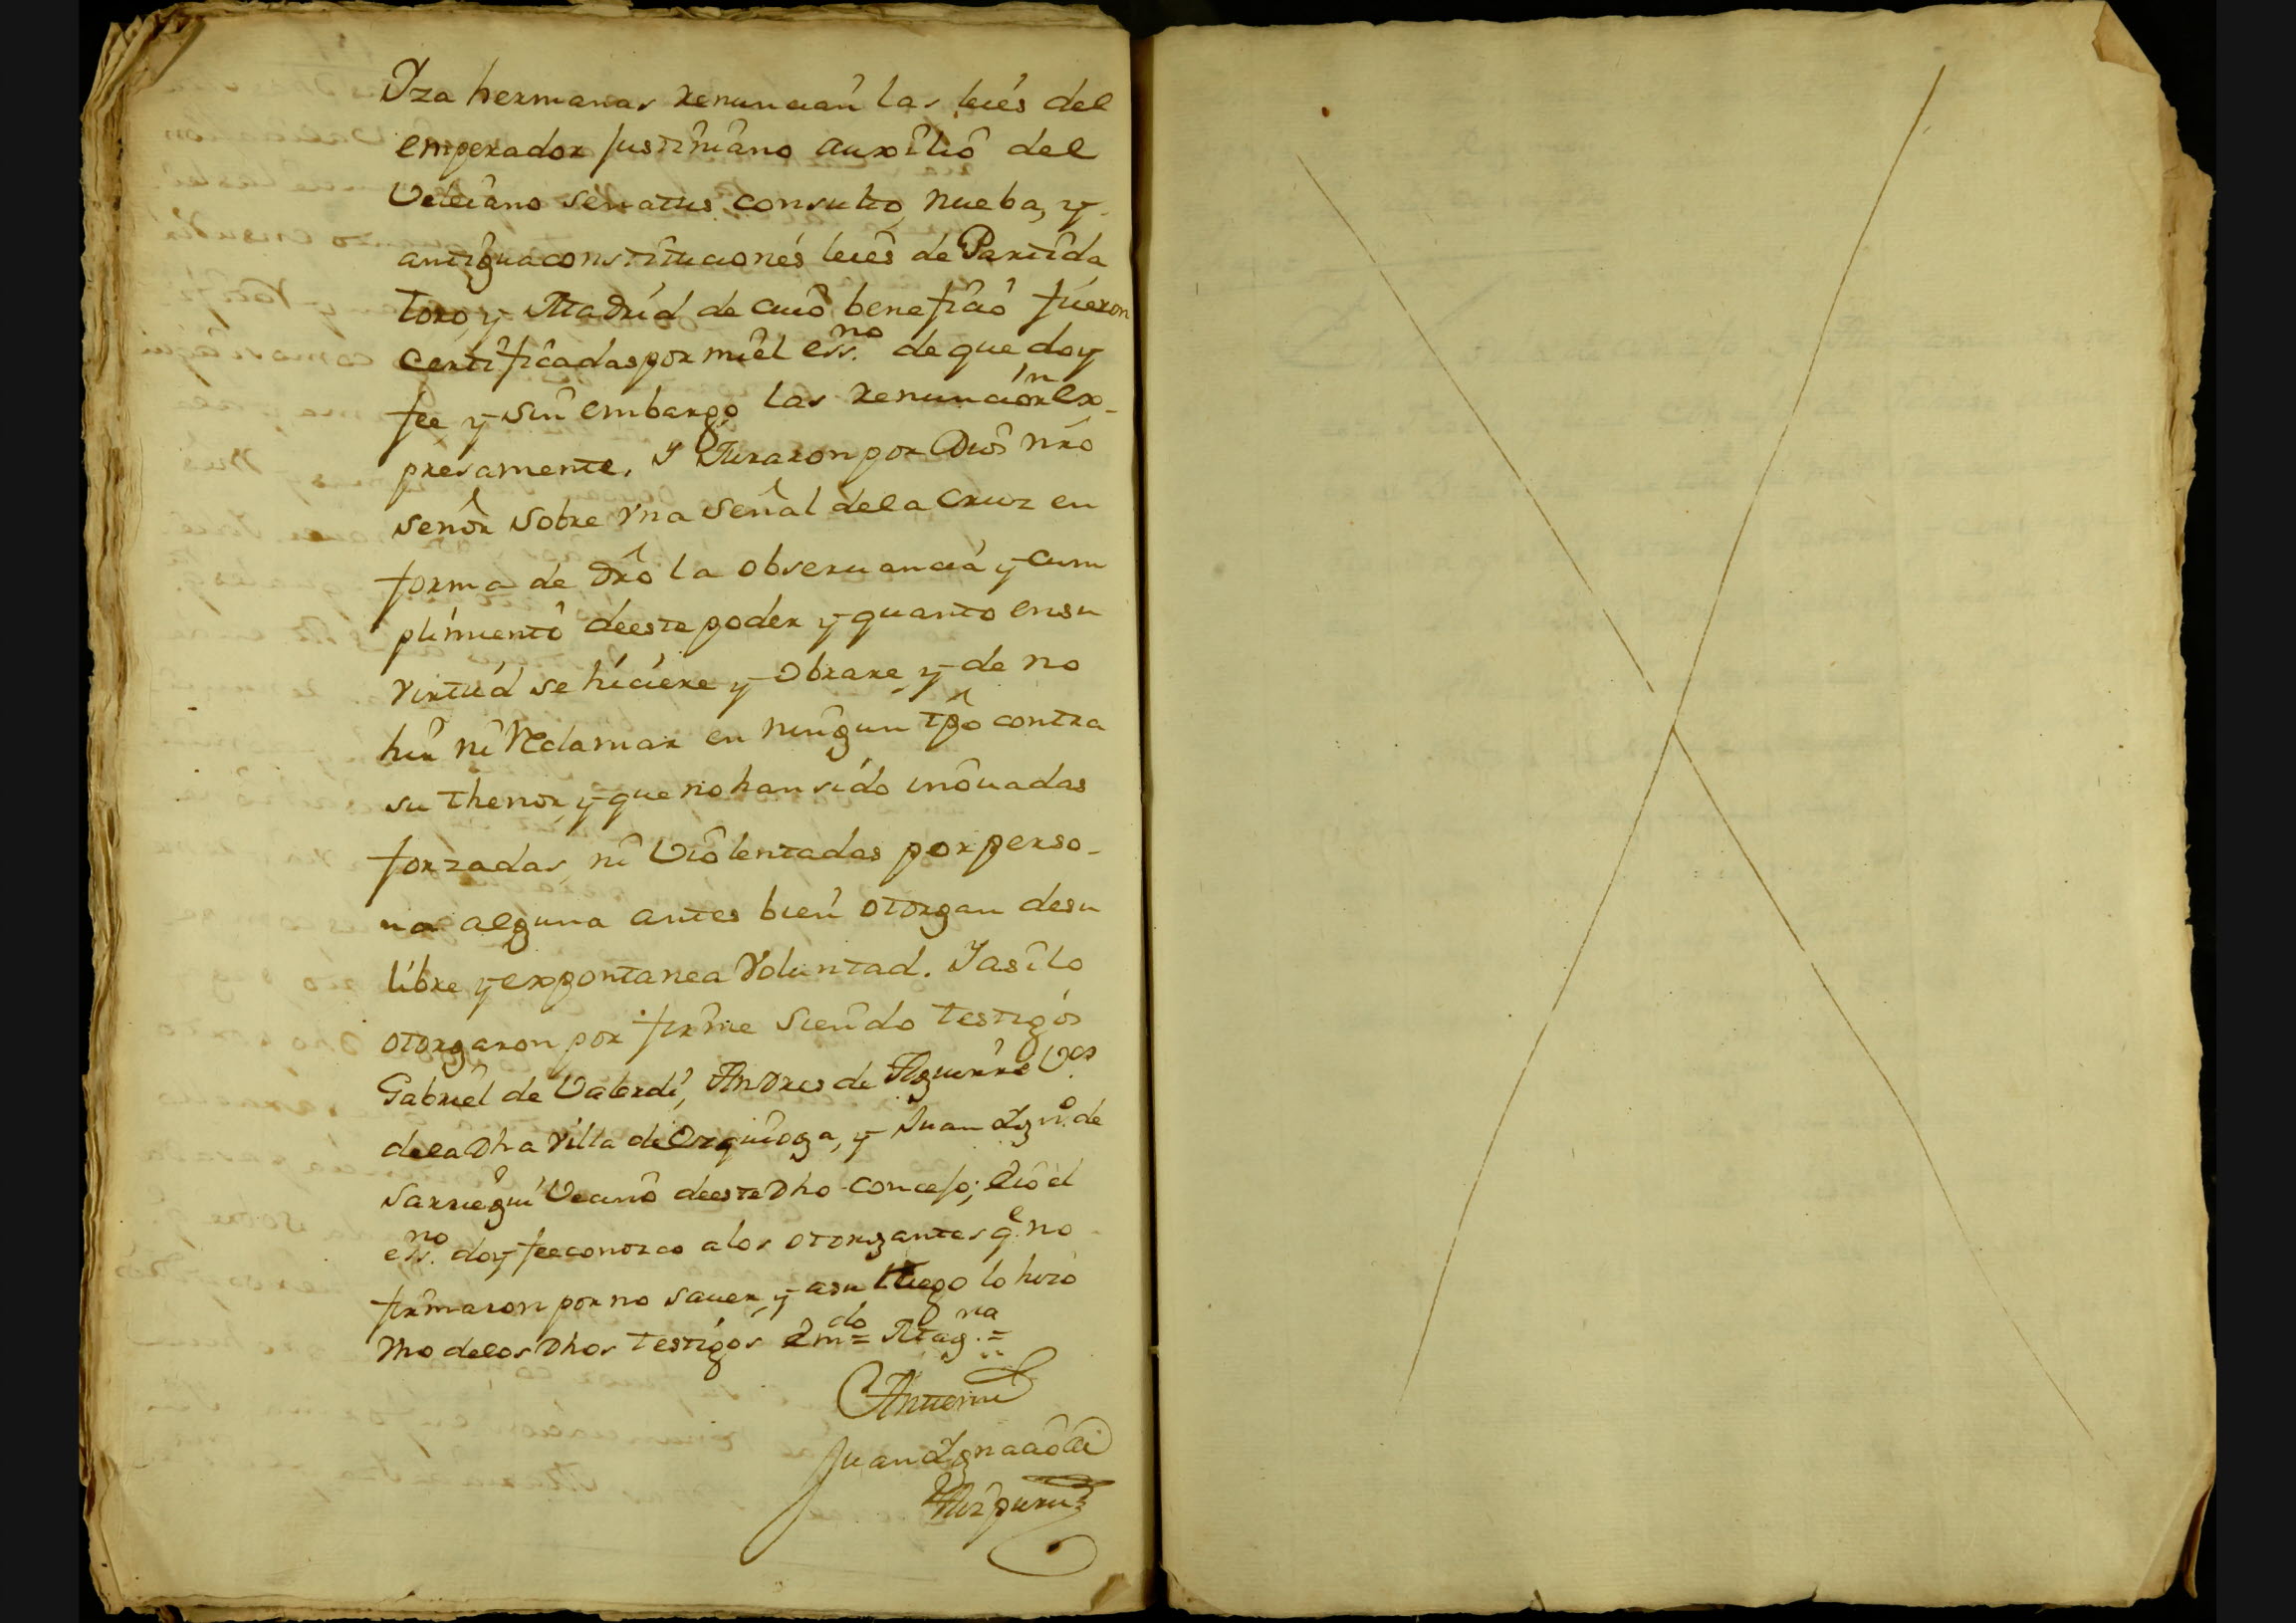 Yza hermanas renuncian las leiés del
emperador Justiniano auxilio del
Veleiano senatus consulto, nueba, y
antigua constituciones leies de Partida
Toro, y Madrid de cuio beneficio fueron
certificadas por mi el essno. de que doy
fee y sin embargo las renuncion ex-
presamente. Y Juraron por Dios nro
señor sobre vna señal de la Cruz en
forma de dro la obseruancia y cum
plimiento de este poder y quanto en su
virtud se hiciere y obrare y de no
hir ni Reclamar en ningun tpo contra
su thenor, y que no han sido inouadas
forzadas, ni Violentadas por perso-
na alguna antes bien otorgan de su
libre y expontanea Voluntad. Y asi lo
otorgaron por firme siendo testigos
Gabriel de Valerdi, Andres de Aguirre Vos
de la Dha Villa de Ezquioga, y Juan Igno. de
Sarriegui Vecino de este Dho concejo; È io el
essno. doy fee conozco a los otorgantes q.e no
firmaron por no sauer, y a su Ruego lo hizo
vno de los Dhos testigos Emdo = Magna. =
Antemi
Juan Ignacio de
Aizpuru